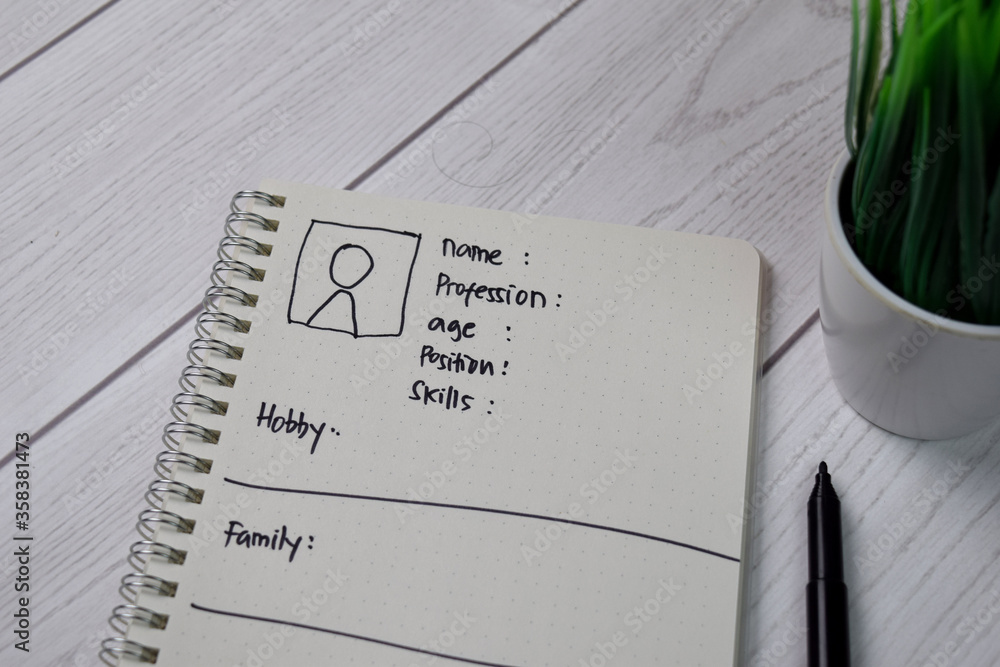 name :
Profession :
age :
Position :
Skills :
Hobby:
Family :
Adobe Stock | #358381473